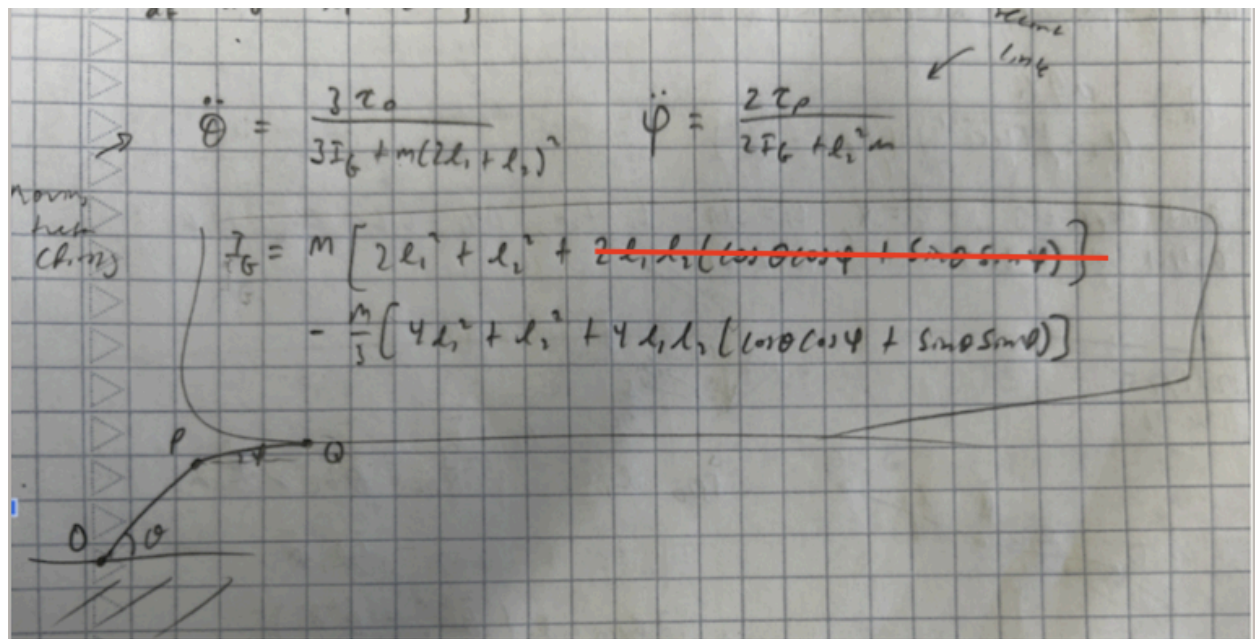 θ̈ = 3τ₀ / (3I_G + m(2l₁ + l₂)²)    φ̈ = 2τ_P / (2I_G + l₂²m)
I_G = m[2l₁² + l₂² + 2l₁l₂(cosθcosφ + sinθsinφ)]
- m/3[4l₁² + l₂² + 4l₁l₂(cosθcosφ + sinθsinφ)]
P φ Q
O θ